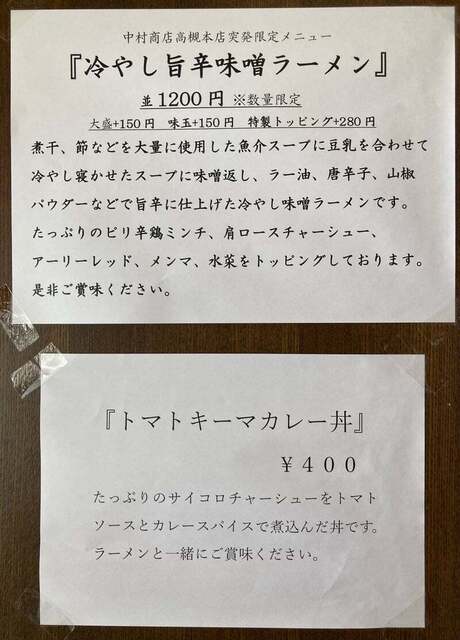 中村商店高槻本店突発限定メニュー
『冷やし旨辛味噌ラーメン』
並1200円 ※数量限定
大盛+150円 味玉+150円 特製トッピング+280円
煮干、節などを大量に使用した魚介スープに豆乳を合わせて
冷やし寝かせたスープに味噌返し、ラー油、唐辛子、山椒
パウダーなどで旨辛に仕上げた冷やし味噌ラーメンです。
たっぷりのピリ辛鶏ミンチ、肩ロースチャーシュー、
アーリーレッド、メンマ、水菜をトッピングしております。
是非ご賞味ください。
『トマトキーマカレー丼』
￥４００
たっぷりのサイコロチャーシューをトマト
ソースとカレースパイスで煮込んだ丼です。
ラーメンと一緒にご賞味ください。